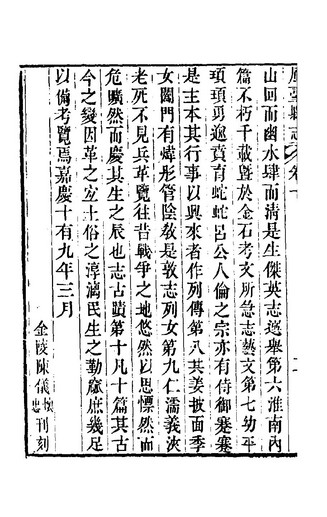 山回而幽水肆而清是生傑英志選舉第六淮南內
篇不朽千載曁於金石考文所急志藝文第七幼平
頊頊勇邈賁育蛇蛇呂公人倫之宗亦有侍御蹇蹇
是主本其行事以興來者作列傳第八其姜披面季
女闔門有煒彤管陰敎是敦志列女第九仁濡義浹
老死不見兵革覽往昔戰爭之地悠然以思慓然而
危曠然而慶其生之辰也志古蹟第十凡十篇其古
今之變因革之宜土俗之淳漓民生之勤窳庶幾足
以備考覽焉嘉慶十有九年三月
金陵陳儀忠懷刊刻